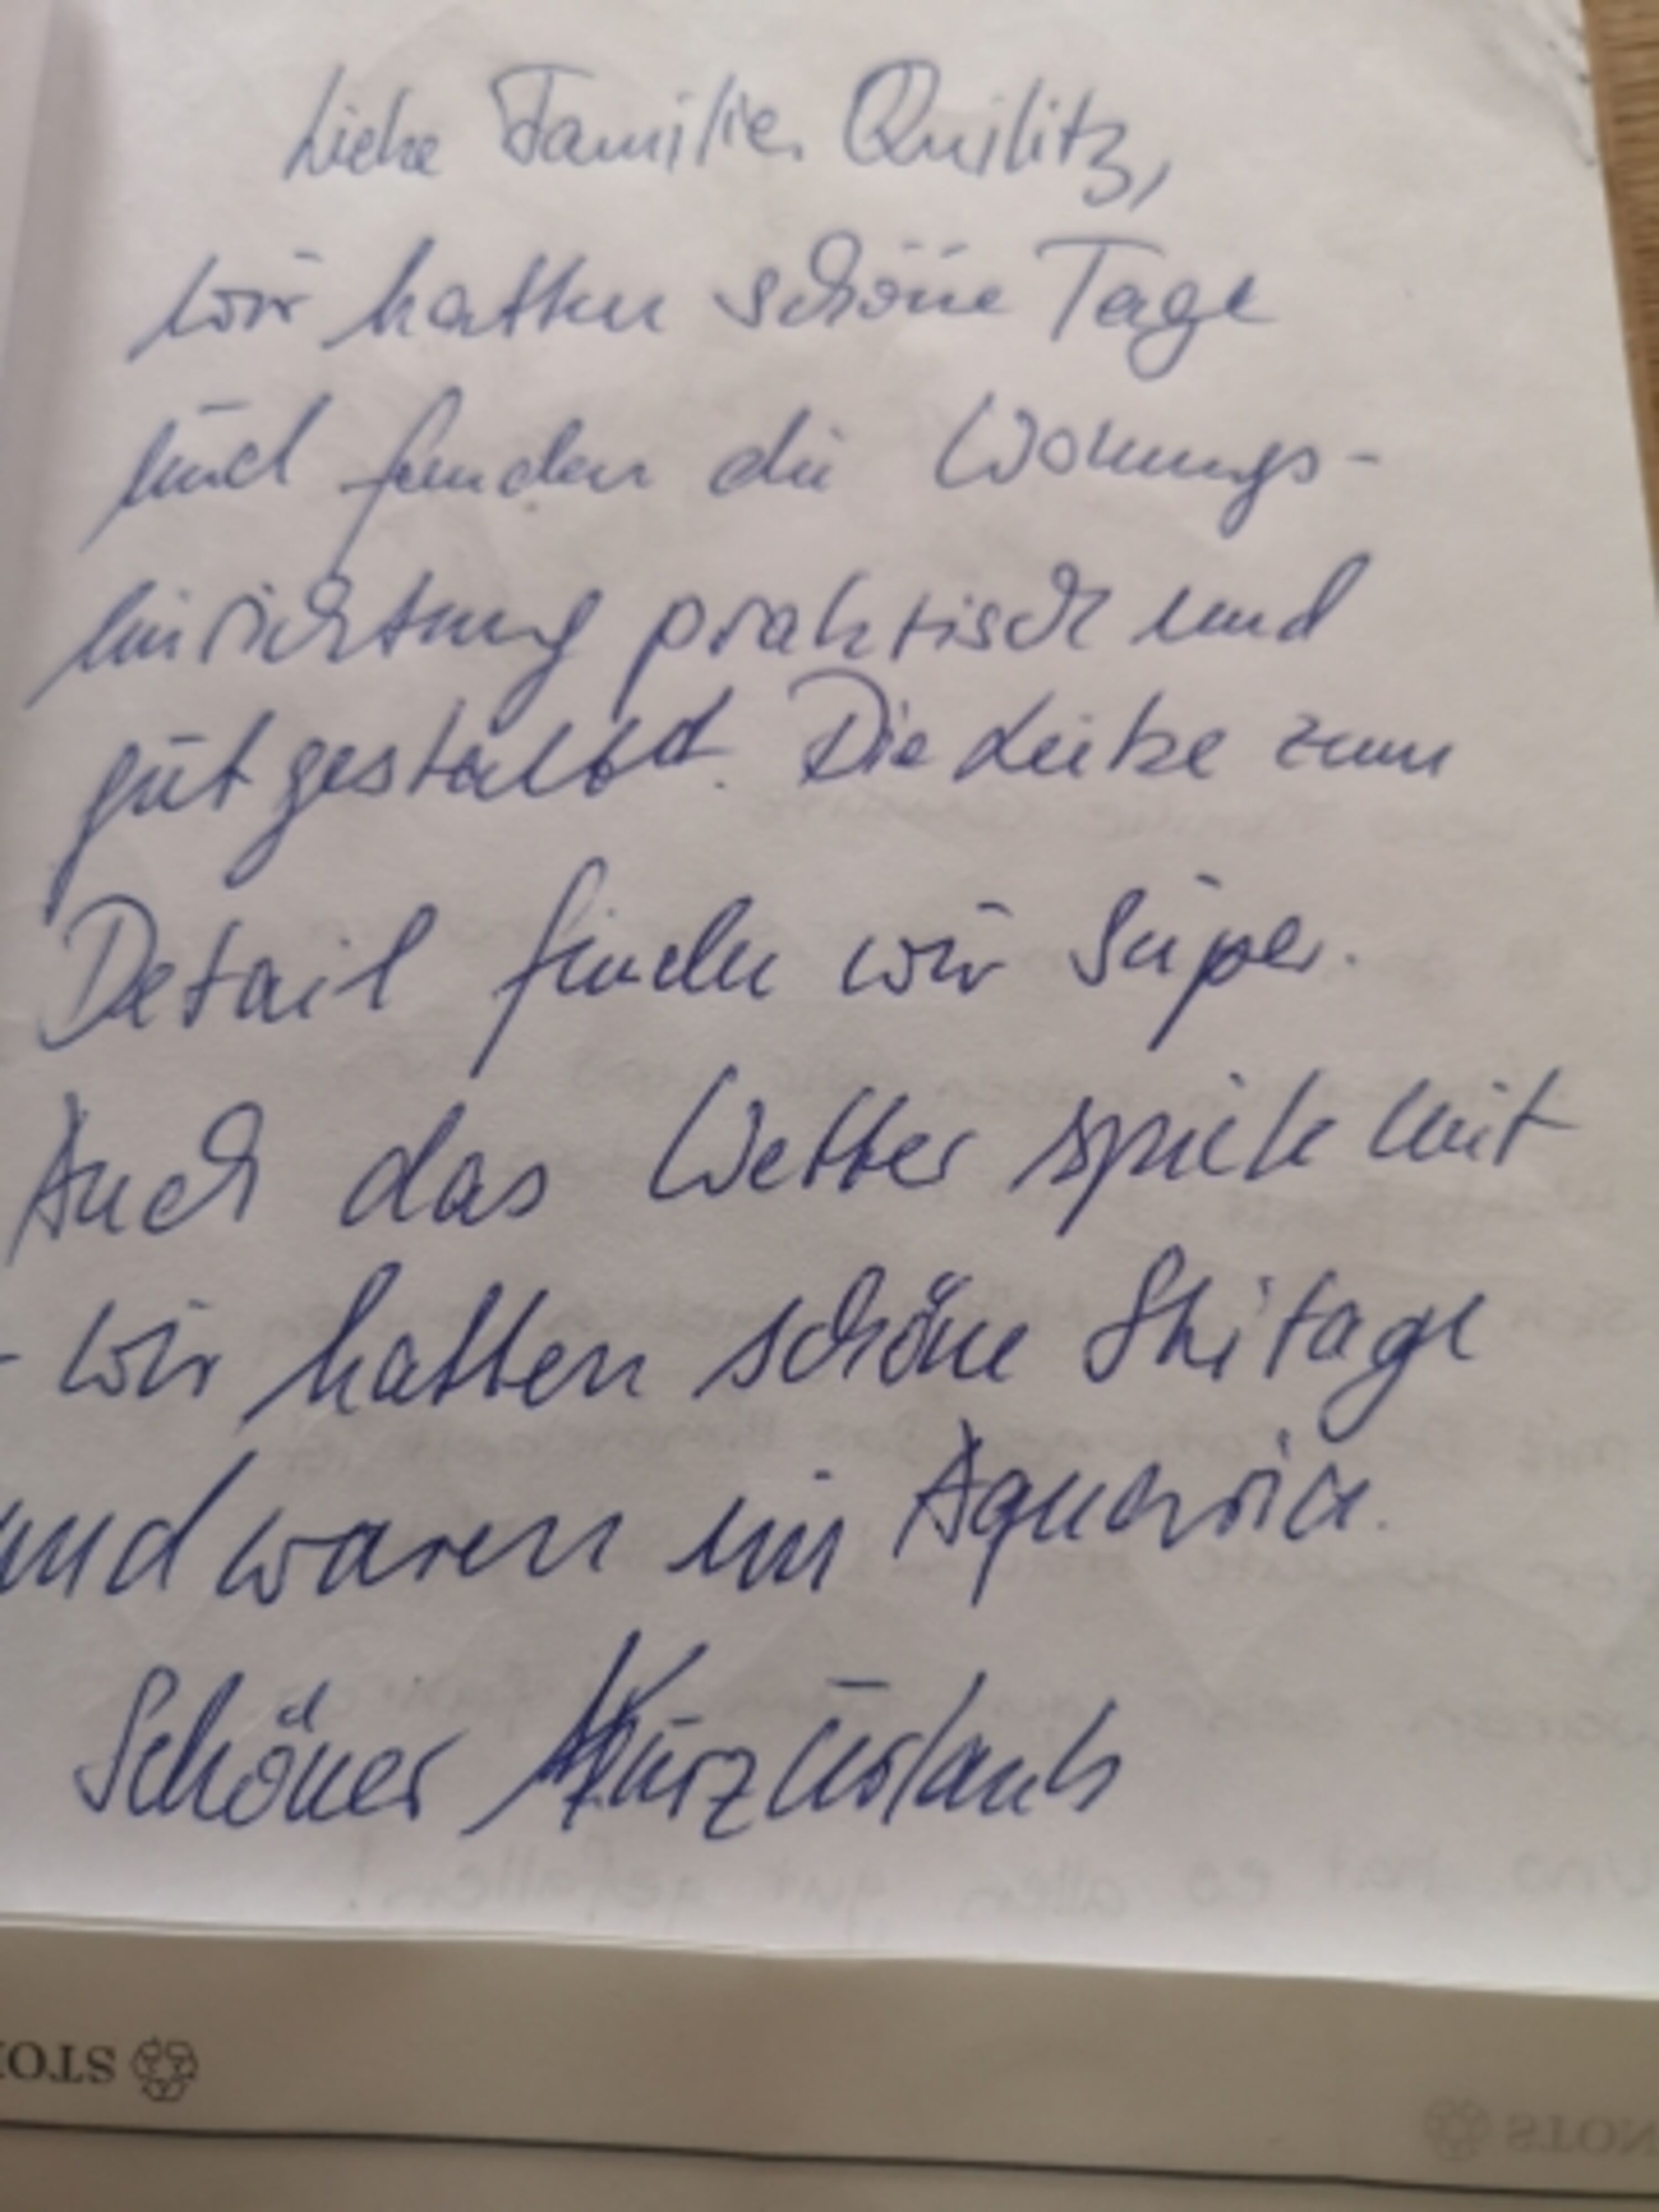 Liebe Familie Quilitz,
wir hatten schöne Tage
und fanden die Wohnungs-
einrichtung praktisch und
gut gestaltet. Die Liebe zum
Detail finden wir super.
Auch das Wetter spielte mit
- wir hatten schöne Skitage
und waren im Aquaria.
Schöner Kurzurlaub